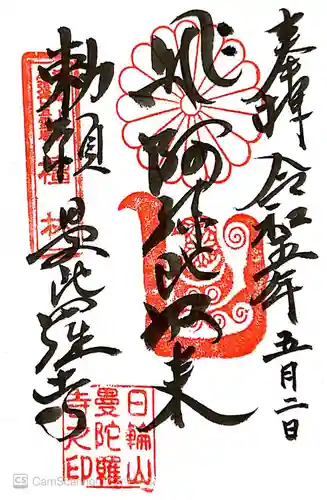 奉拝 令和五年 五月二日
飛 阿弥陀如来
勅願 曼陀羅寺
日輪山
曼陀羅
寺之印
CS CamScanner